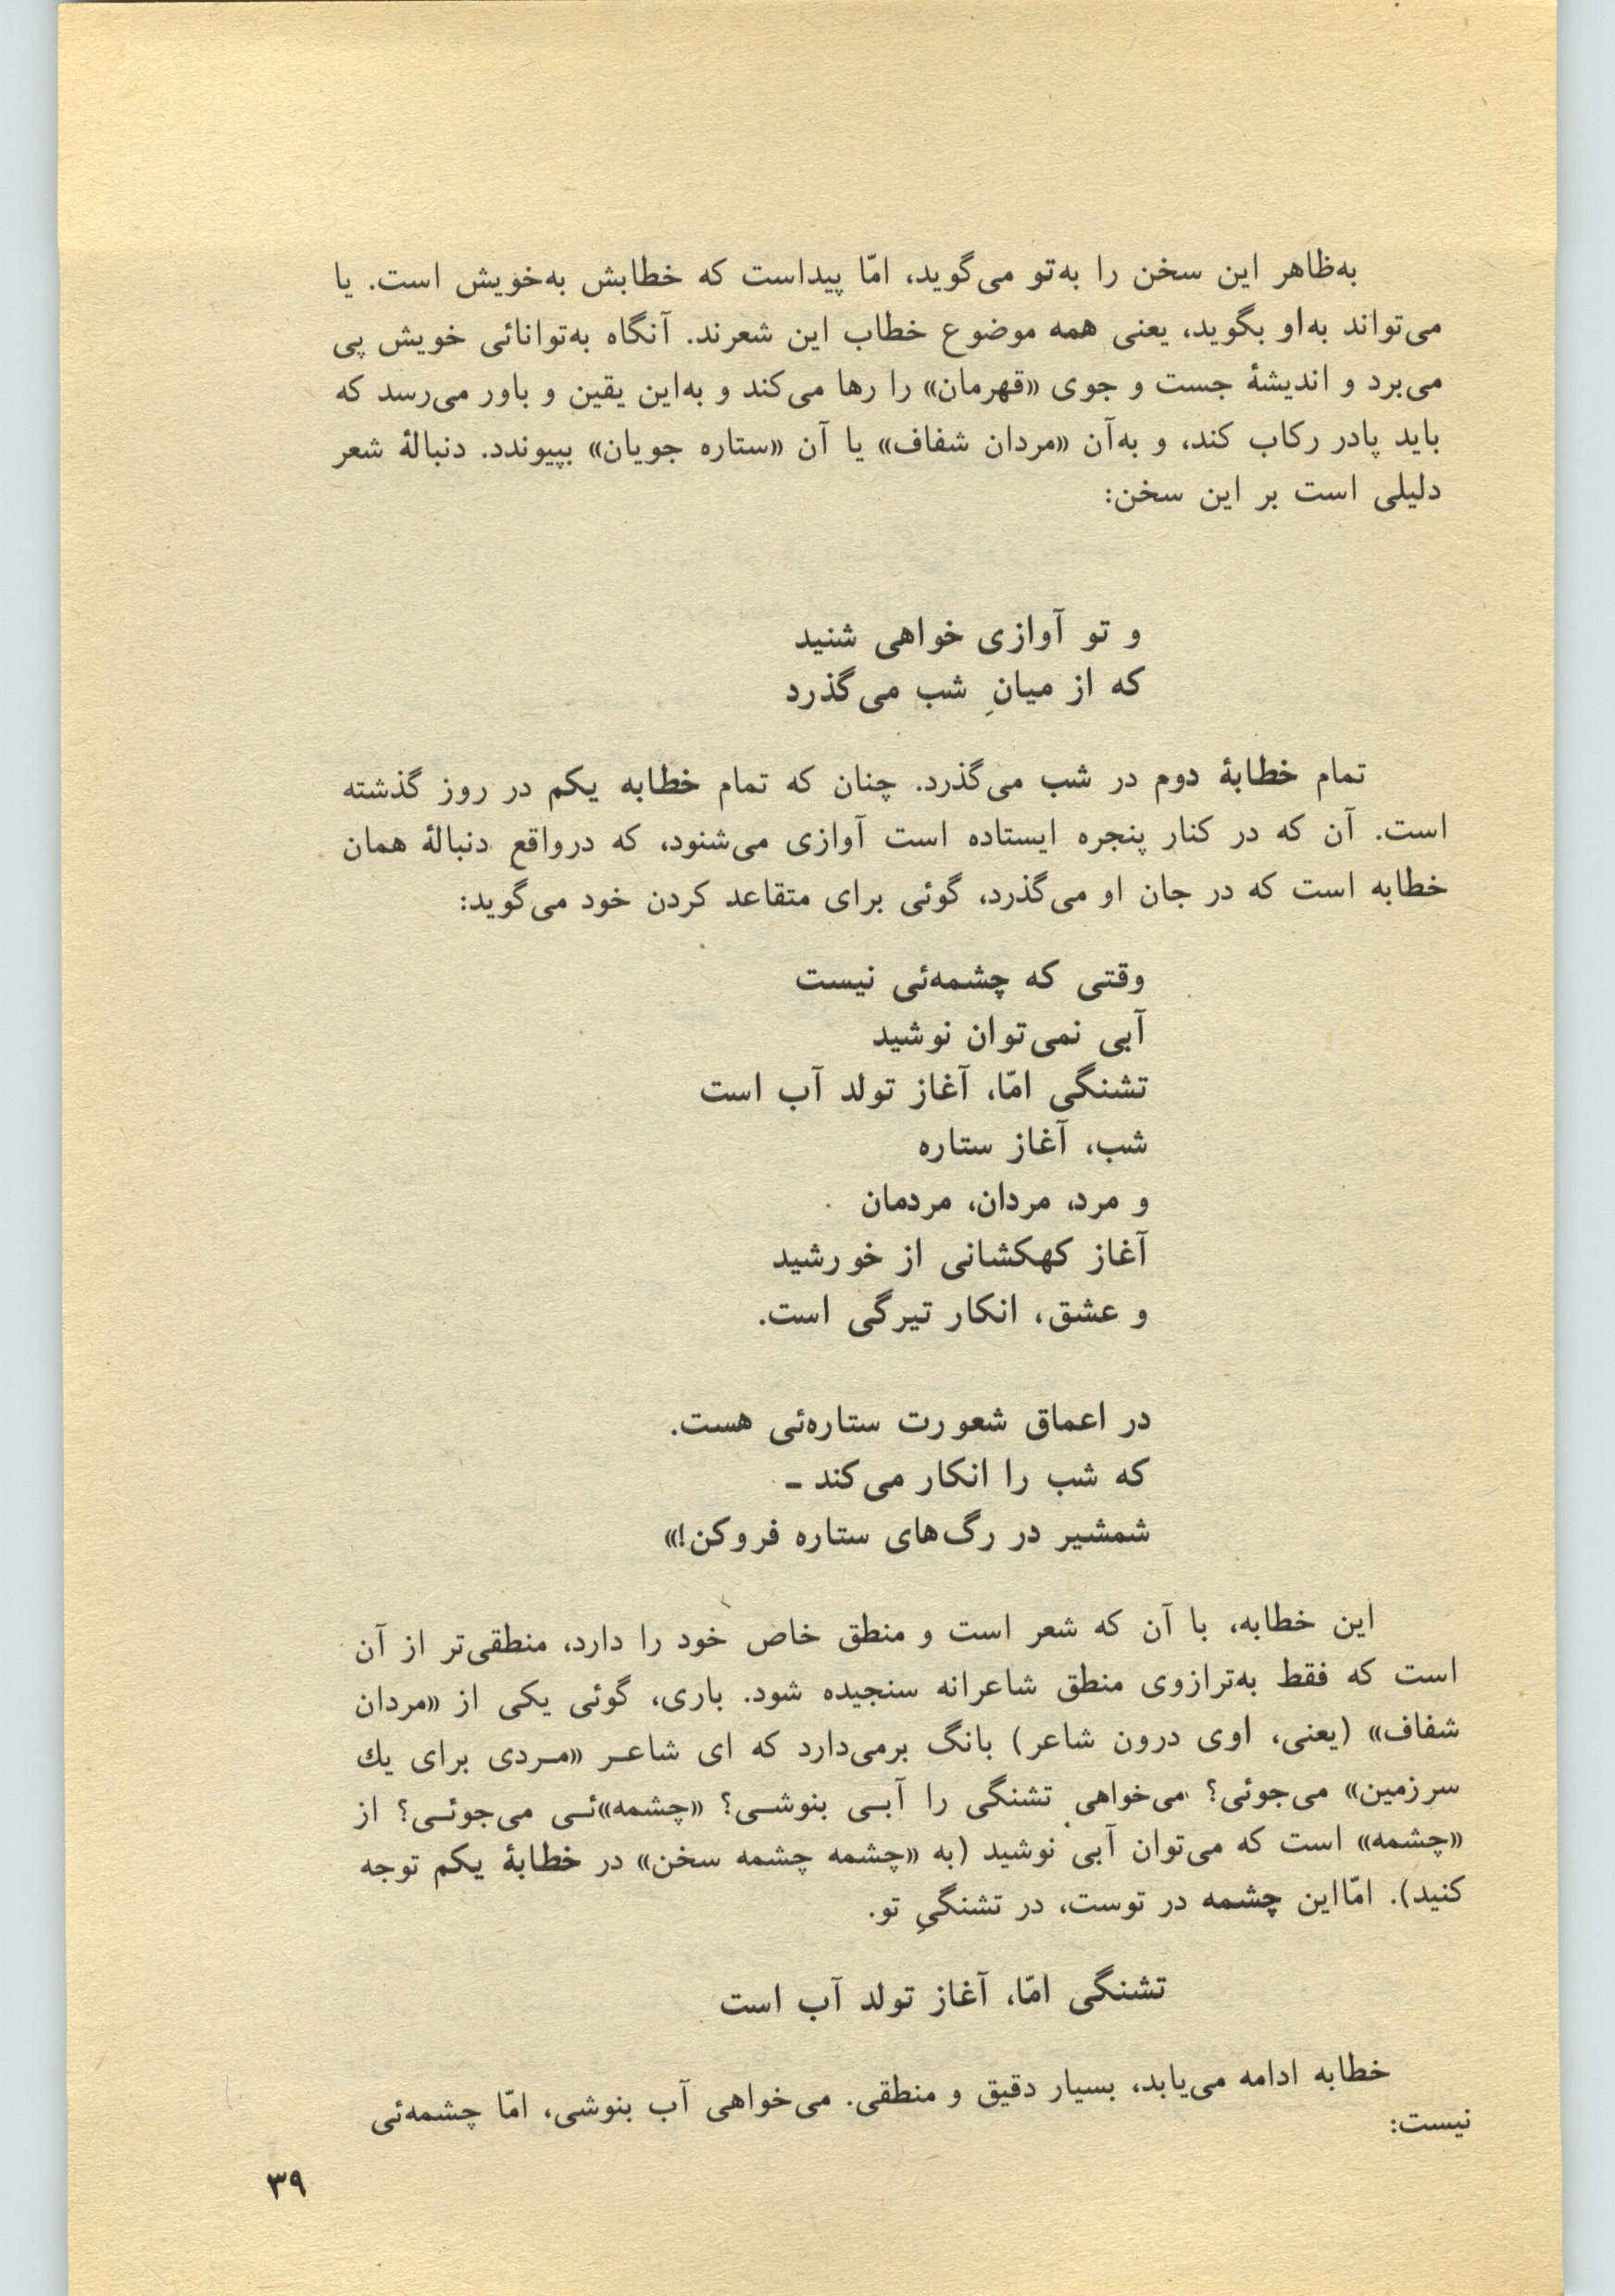 به‌ظاهر این سخن را به‌تو می‌گوید، امّا پیداست که خطابش به‌خویش است. یا
می‌تواند به‌او بگوید، یعنی همه موضوع خطاب این شعرند. آنگاه به‌توانائی خویش پی
می‌برد و اندیشۀ جست و جوی «قهرمان» را رها می‌کند و به‌این یقین و باور می‌رسد که
باید پادر رکاب کند، و به‌آن «مردان شفاف» یا آن «ستاره جویان» بپیوندد. دنبالۀ شعر
دلیلی است بر این سخن:
و تو آوازی خواهی شنید
که از میانِ شب می‌گذرد
تمام خطابۀ دوم در شب می‌گذرد. چنان که تمام خطابه یکم در روز گذشته
است. آن که در کنار پنجره ایستاده است آوازی می‌شنود، که درواقع دنبالۀ همان
خطابه است که در جان او می‌گذرد، گوئی برای متقاعد کردن خود می‌گوید:
وقتی که چشمه‌ئی نیست
آبی نمی‌توان نوشید
تشنگی امّا، آغاز تولد آب است
شب، آغاز ستاره
و مرد، مردان، مردمان
آغاز کهکشانی از خورشید
و عشق، انکار تیرگی است.
در اعماق شعورت ستاره‌ئی هست.
که شب را انکار می‌کند ـ
شمشیر در رگ‌های ستاره فروکن!»
این خطابه، با آن که شعر است و منطق خاص خود را دارد، منطقی‌تر از آن
است که فقط به‌ترازوی منطق شاعرانه سنجیده شود. باری، گوئی یکی از «مردان
شفاف» (یعنی، اوی درون شاعر) بانگ برمی‌دارد که ای شاعـر «مـردی برای یك
سرزمین» می‌جوئی؟ می‌خواهی تشنگی را آبـی بنوشـی؟ «چشمه»ئـی می‌جوئـی؟ از
«چشمه» است که می‌توان آبی نوشید (به «چشمه چشمه سخن» در خطابۀ یکم توجه
کنید). امّااین چشمه در توست، در تشنگیِ تو.
تشنگی امّا، آغاز تولد آب است
خطابه ادامه می‌یابد، بسیار دقیق و منطقی. می‌خواهی آب بنوشی، امّا چشمه‌ئی
نیست:
۳۹